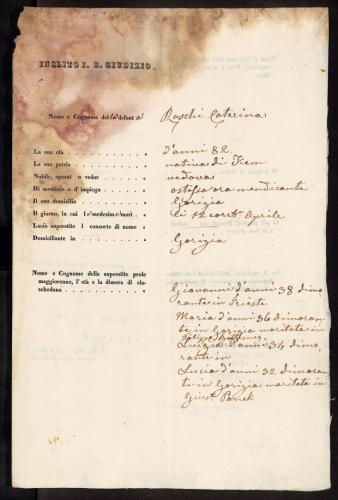 INCLITO I. R. GIUDIZIO
Nome e Cognome del la defont a Raschi Caterina
La sua età d'anni 82
La sua patria nativa di
Nubile, sposat o vedov vedova
Di mestiere o d'impiego ora mendicante
Il suo domicilio Gorizia
Il giorno, in cui medesim mori li 12 Aprile
Lasciò superstite l consorte di nome
Domiciliante in Gorizia
Nome e Cognome della superstite prole
maggiorenne, l'età e la dimora di cia-
scheduno
Giovanni d'anni 38 dimo
rante in Trieste
Maria d'anni 36 dimoran
te in Gorizia maritata in
d'anni 34 dimo,
rante in
Lucia d'anni 32 dimoran
te in Gorizia maritata in
Gius